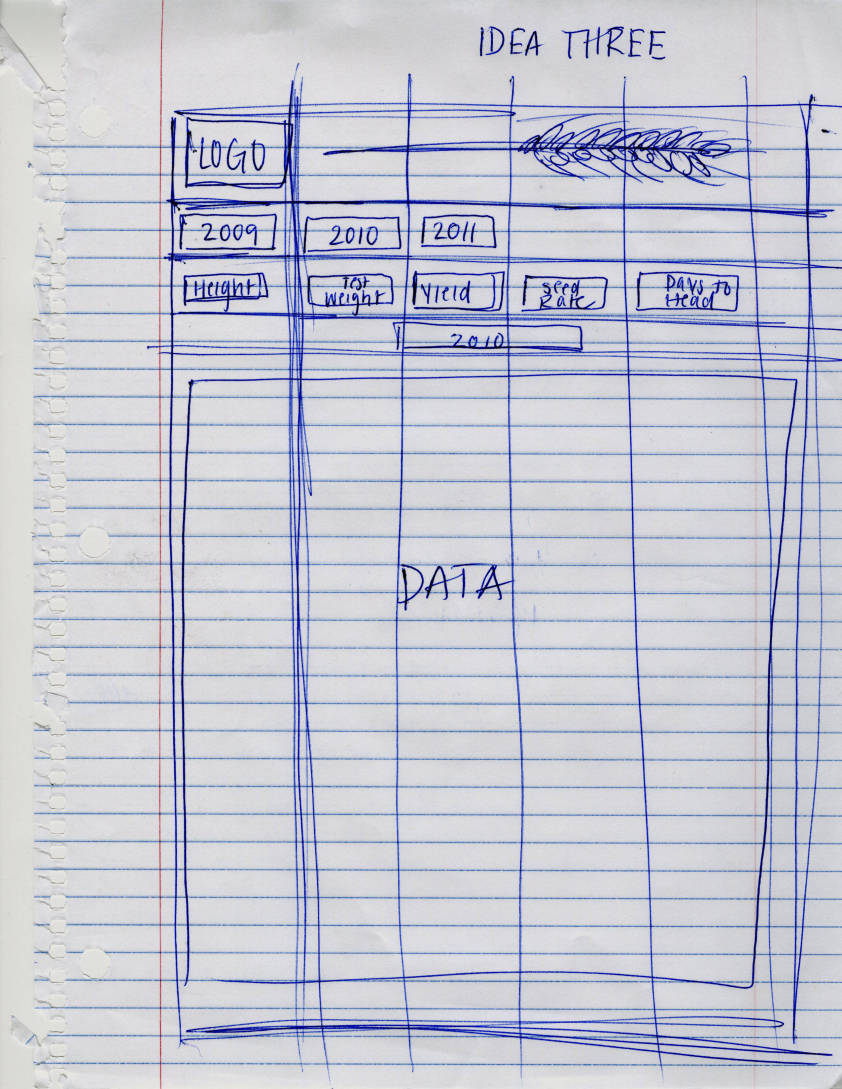 IDEA THREE
LOGO
2009 2010 2011
Height Test Weight Yield Seed Rate Days to Head
2010
DATA